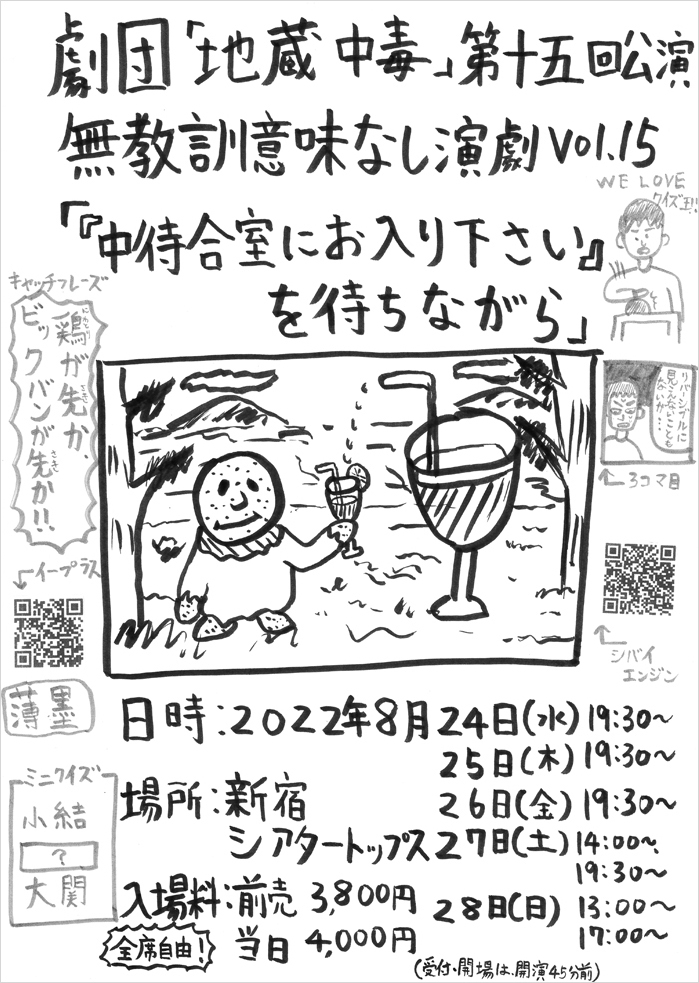 劇団「地蔵中毒」第十五回公演
無教訓意味なし演劇vol.15
「『中待合室にお入り下さい』
を待ちながら」
WE LOVE
クイズ王!!
キャッチフレーズ
鶏が先か、
にわとり
さき
ビックバンが先か!!
さき
リバーシブルに
見えないことも
ないが…
3コマ目
イープラス
シバイ
エンジン
薄墨
日時:2022年8月24日(水)19:30~
25日(木)19:30~
場所:新宿
26日(金)19:30~
シアタートップス
27日(土)14:00~、
19:30~
入場料:前売 3,800円
28日(日)13:00~
全席自由!
当日 4,000円
17:00~
(受付・開場は、開演45分前)
ミニクイズ
小結
?
大関